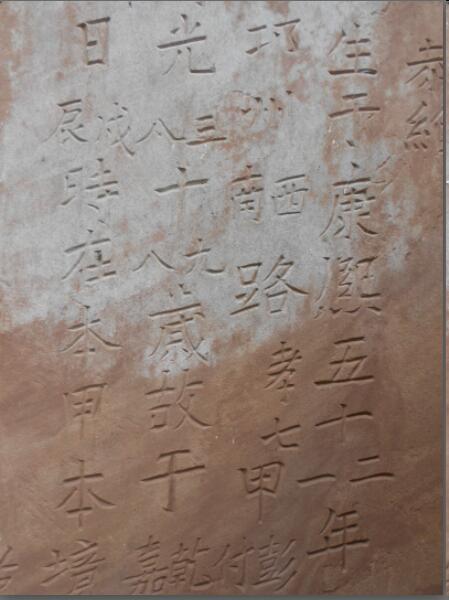 恭
生于康熙五十二一年
邛州西南路孝七甲彭付
光三八十九八歲故于乾嘉
日戌辰時在本甲本境